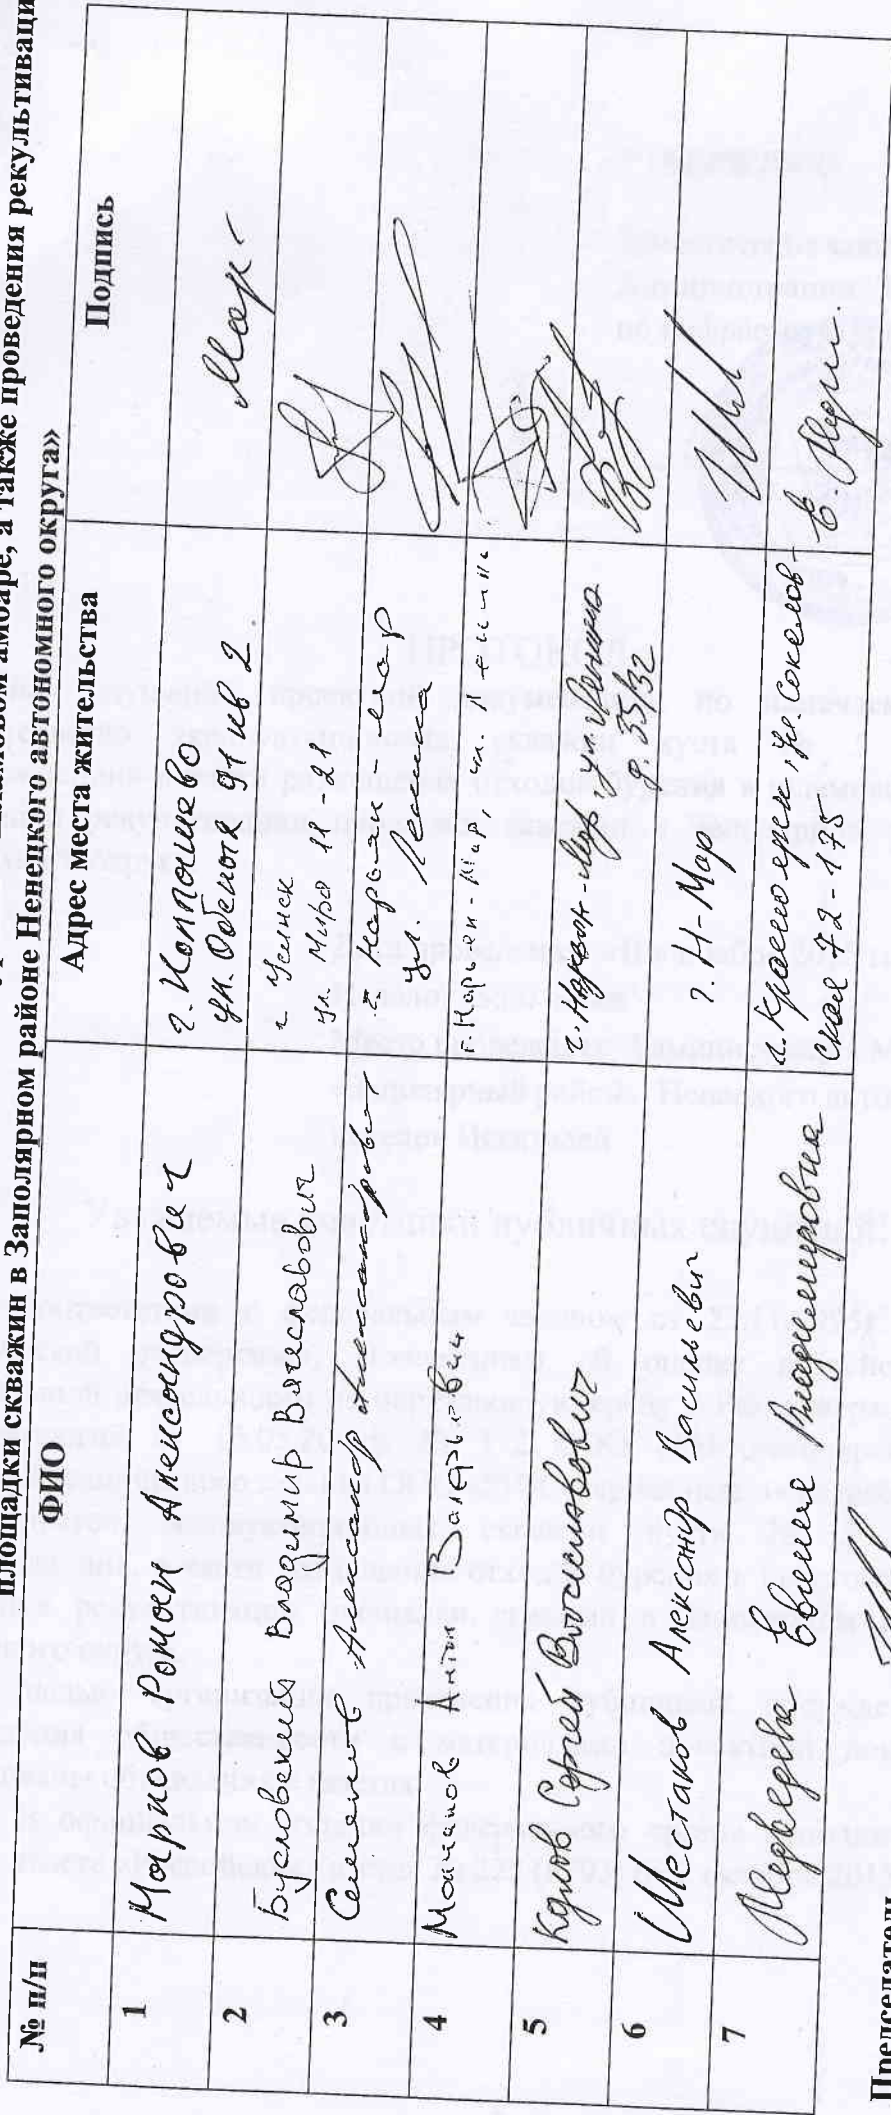 амбаре, а также проведения рекультивации
площадки скважин в Заполярном районе Ненецкого автономного округа»
№ п/п ФИО Адрес места жительства Подпись
1 Марков Роман Александрович г. Колпашево
ул. Обская 91 кв 2
2 Бусловский Владимир Вячеславович г Усинск
ул Мира 11-21
3 Семёнов Александр Александрович г. Нарьян-Мар
ул. Ленина
4 Антон Валерьевич г. Нарьян-Мар ул. Ленина
5 Сергей Витальевич г. Нарьян-Мар ул Ленина
6 Шестаков Александр Васильевич г. Н-Мар
7 Медведева Евгения Владимировна
72-175
Председатель